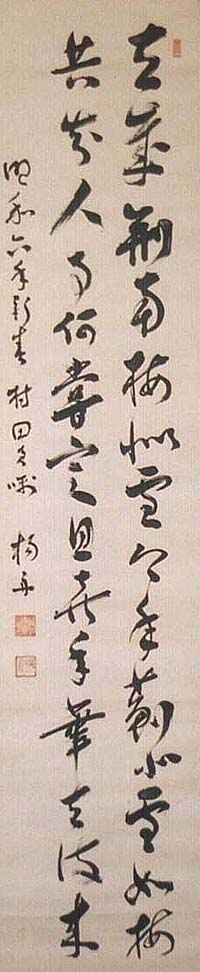 去歲荊南梅似雪今年薊北雪如梅
共知人事何嘗定且喜年華去復來
和六年新春 村田